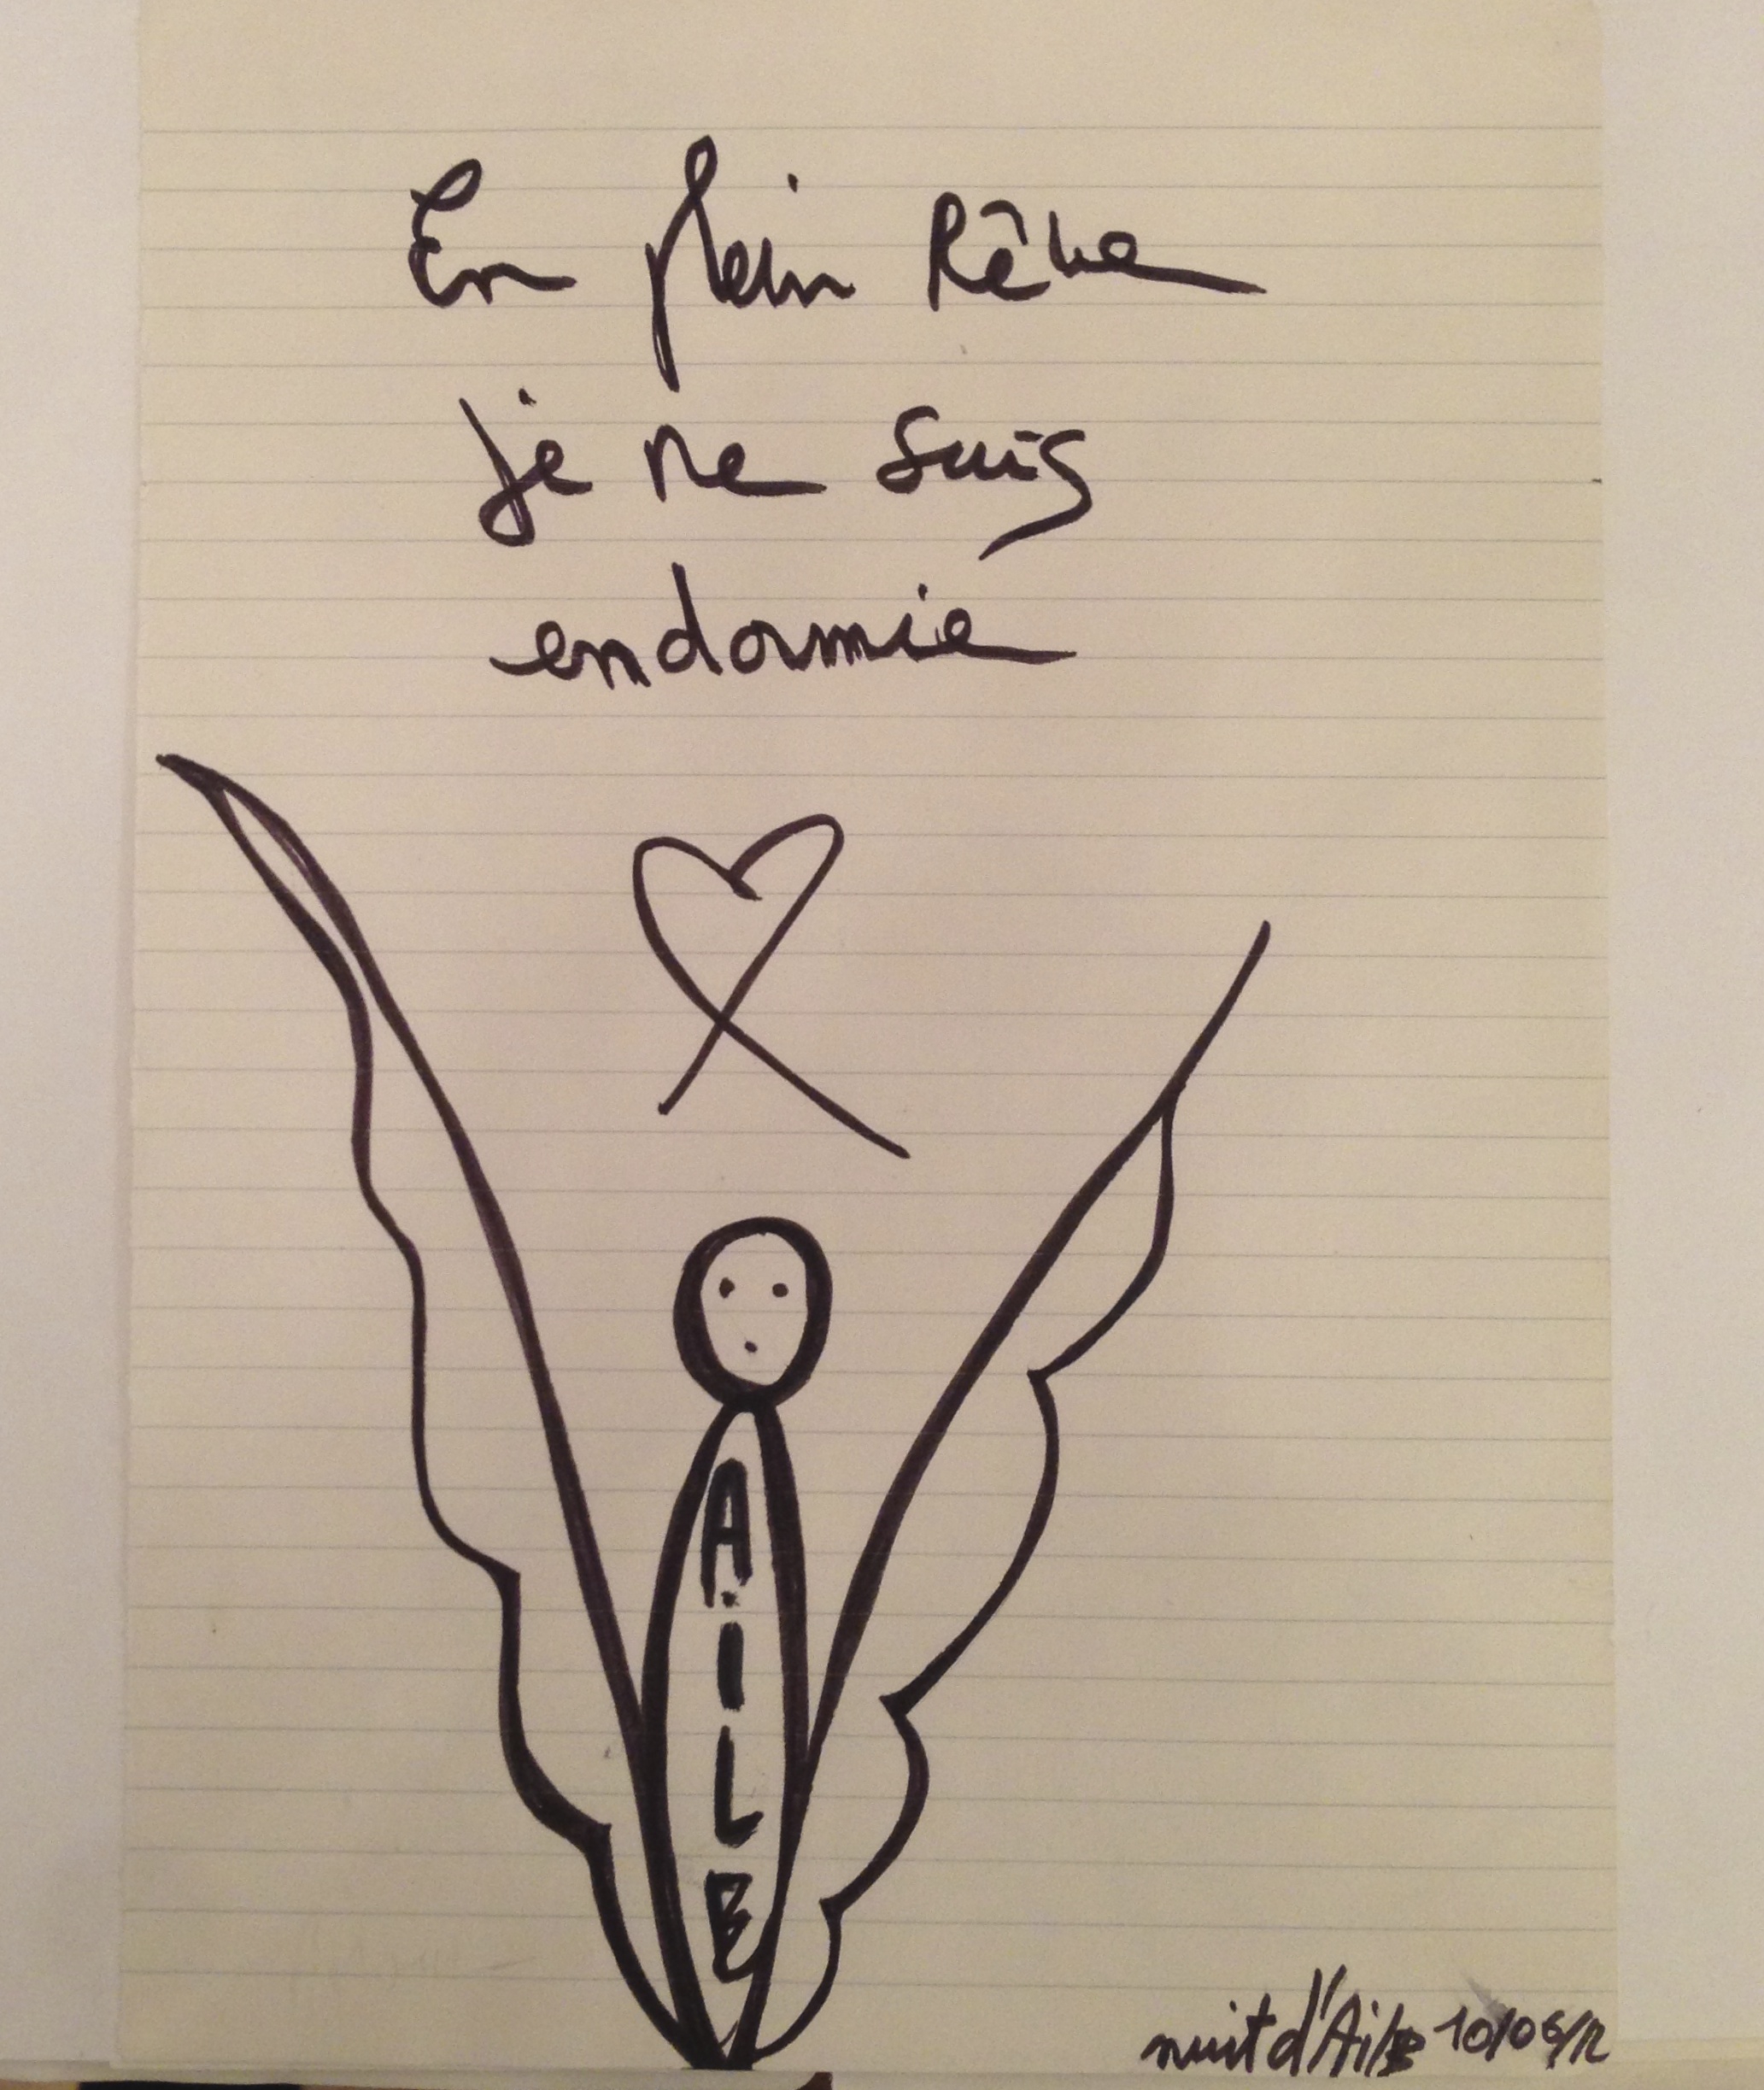 En plein Rêve
je ne suis
endormie
AILE
nuit d'Aile 10/06/12